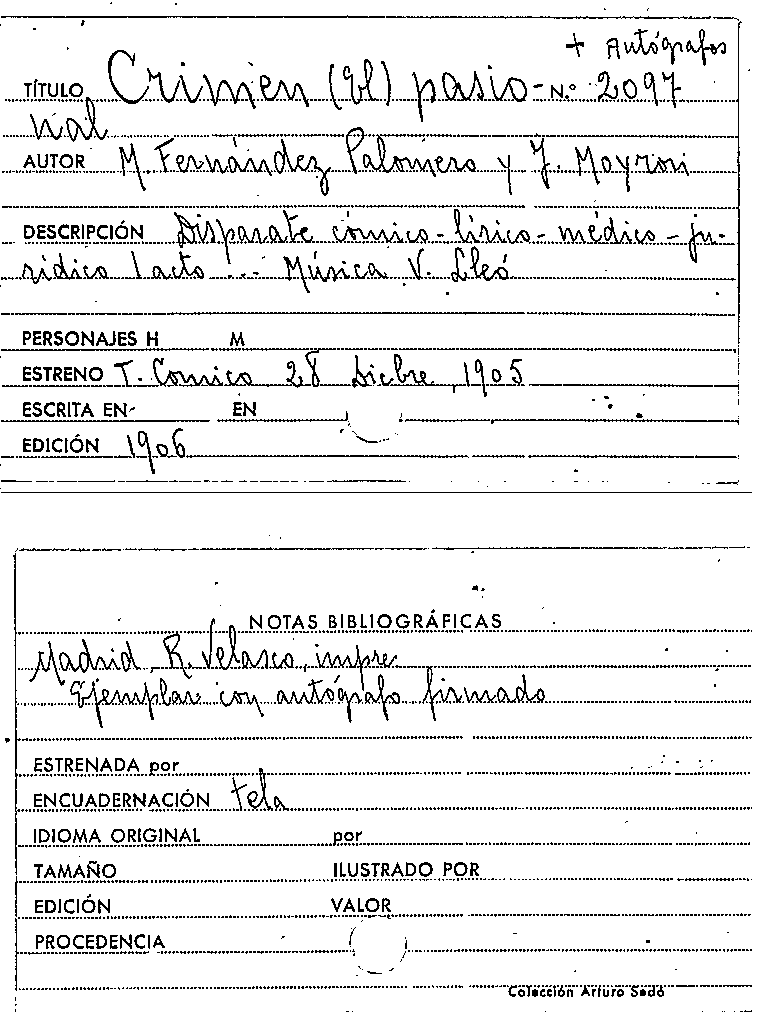 + Autógrafos
TÍTULO Crimen (El) pasio- N.º 2097
nal
AUTOR M. Fernández Palomero y J. Moyron
DESCRIPCIÓN Disparate cómico-lírico-médico-ju-
rídico 1 acto ... Música V. Lleó
PERSONAJES H M
ESTRENO T. Comico 28 Dicbre, 1905
ESCRITA EN- EN
EDICIÓN 1906
NOTAS BIBLIOGRÁFICAS
Madrid, R. Velasco, impre.
Ejemplar con autógrafo firmado
ESTRENADA por
ENCUADERNACIÓN tela
IDIOMA ORIGINAL por
TAMAÑO ILUSTRADO POR
EDICIÓN VALOR
PROCEDENCIA
Colección Arturo Sedó